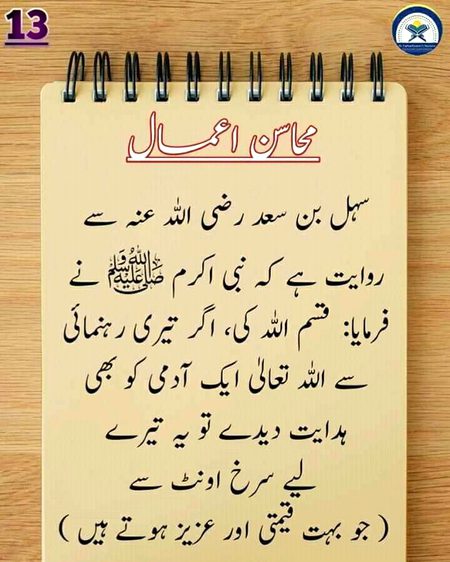 13
محاسن اعمال
سہل بن سعد رضی اللہ عنہ سے
روایت ہے کہ نبی اکرم ﷺ نے
فرمایا: قسم اللہ کی، اگر تیری رہنمائی
سے اللہ تعالیٰ ایک آدمی کو بھی
ہدایت دیدے تو یہ تیرے
لیے سرخ اونٹ سے
( جو بہت قیمتی اور عزیز ہوتے ہیں )